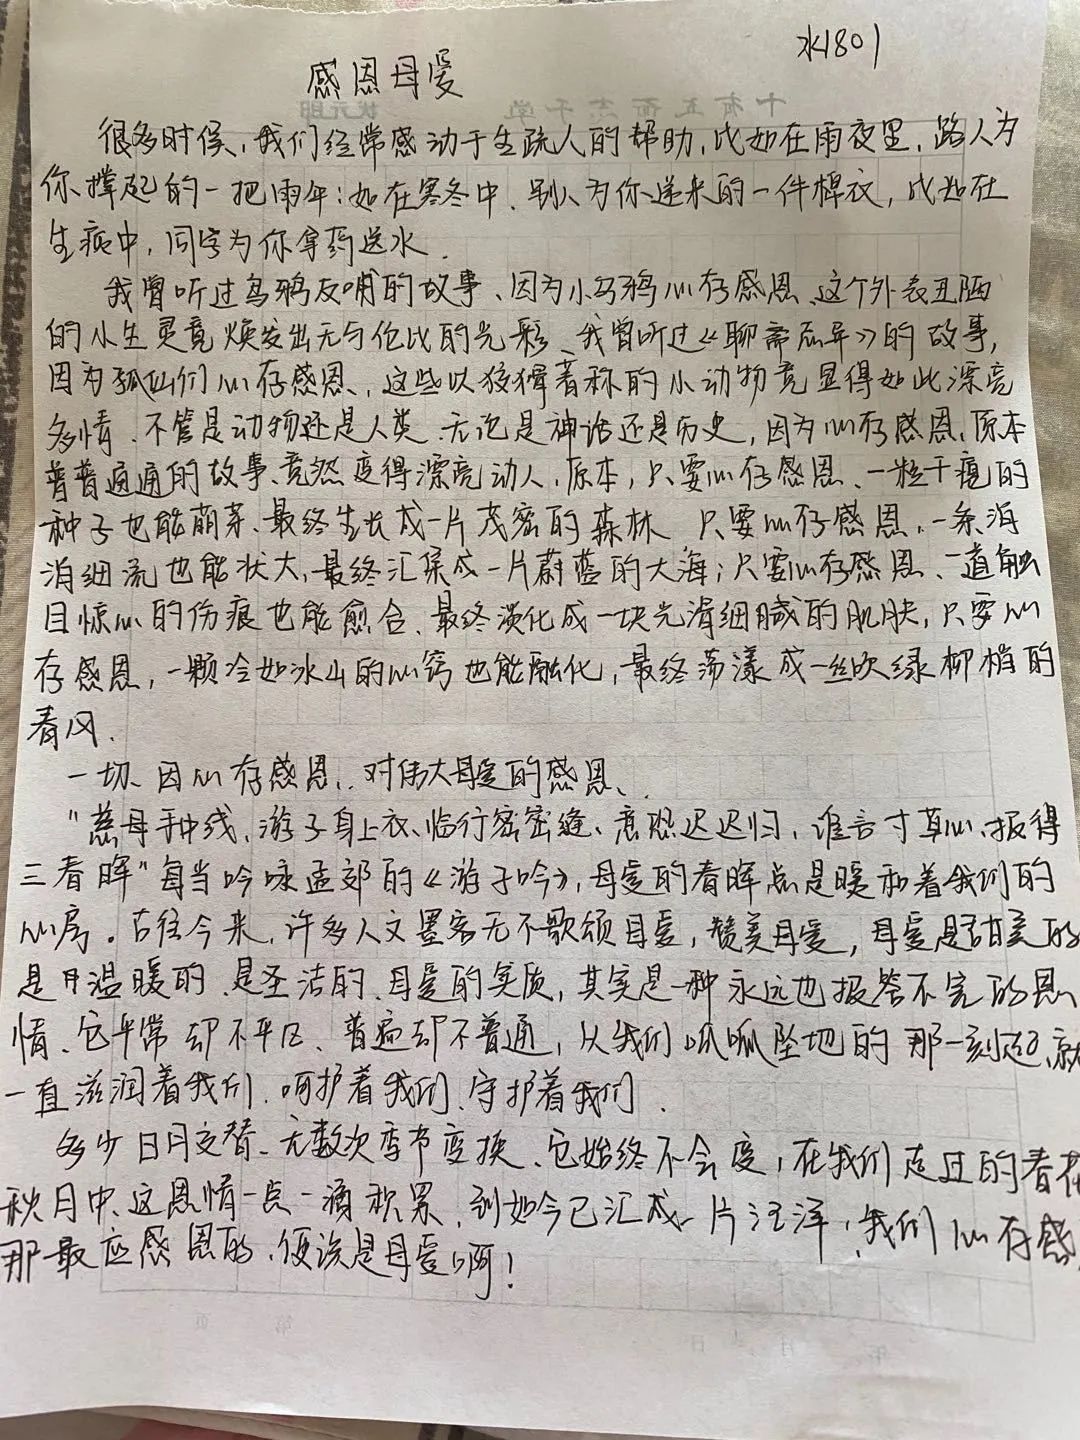 水1801
感恩母爱
很多时候、我们经常感动于生疏人的帮助,比如在雨夜里,路人为
你撑起的一把雨伞;如在寒冬中、别人为你递来的一件棉衣,或如在
生病中,同学为你拿药送水.
我曾听过乌鸦反哺的故事、因为小乌鸦心存感恩、这个外表丑陋
的小生灵竟焕发出无与伦比的光彩、我曾听过《聊斋志异》的故事,
因为狐仙们心存感恩、这些以狡猾著称的小动物竟显得如此漂亮
多情、不管是动物还是人类、无论是神话还是历史,因为心存感恩,原本
普普通通的故事、竟然变得漂亮动人,原本,只要心存感恩、一粒干瘪的
种子也能萌芽、最终生长成一片茂密的森林 只要心存感恩,一条涓
涓细流也能壮大,最终汇集成一片蔚蓝的大海;只要心存感恩、一道触
目惊心的伤痕也能愈合、最终淡化成一块光滑细腻的肌肤,只要心
存感恩,一颗冷如冰山的心窍也能融化,最终荡漾成一丝吹绿柳梢的
春风.
一切、因心存感恩、对伟大母爱的感恩、
"慈母手中线,游子身上衣、临行密密缝、意恐迟迟归,谁言寸草心、报得
三春晖"每当吟咏孟郊的《游子吟》,母爱的春晖总是暖和着我们的
心房。古往今来,许多人文墨客无不歌颂母爱,赞美母爱,母爱是甜美的
是温暖的、是圣洁的、母爱的实质,其实是一种永远也报答不完的恩
情、它平常却不平凡、普遍却不普通,从我们呱呱坠地的那一刻起,就
一直滋润着我们、呵护着我们、守护着我们.
多少日月交替、无数次季节变换、它始终不会变,在我们走过的春花
秋月中、这恩情一点一滴积累,到如今已汇成一片汪洋,我们心存感
那最应感恩的,便该是母爱啊!